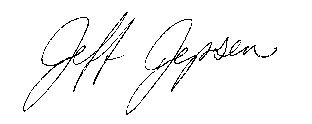 Jeff Jepsen